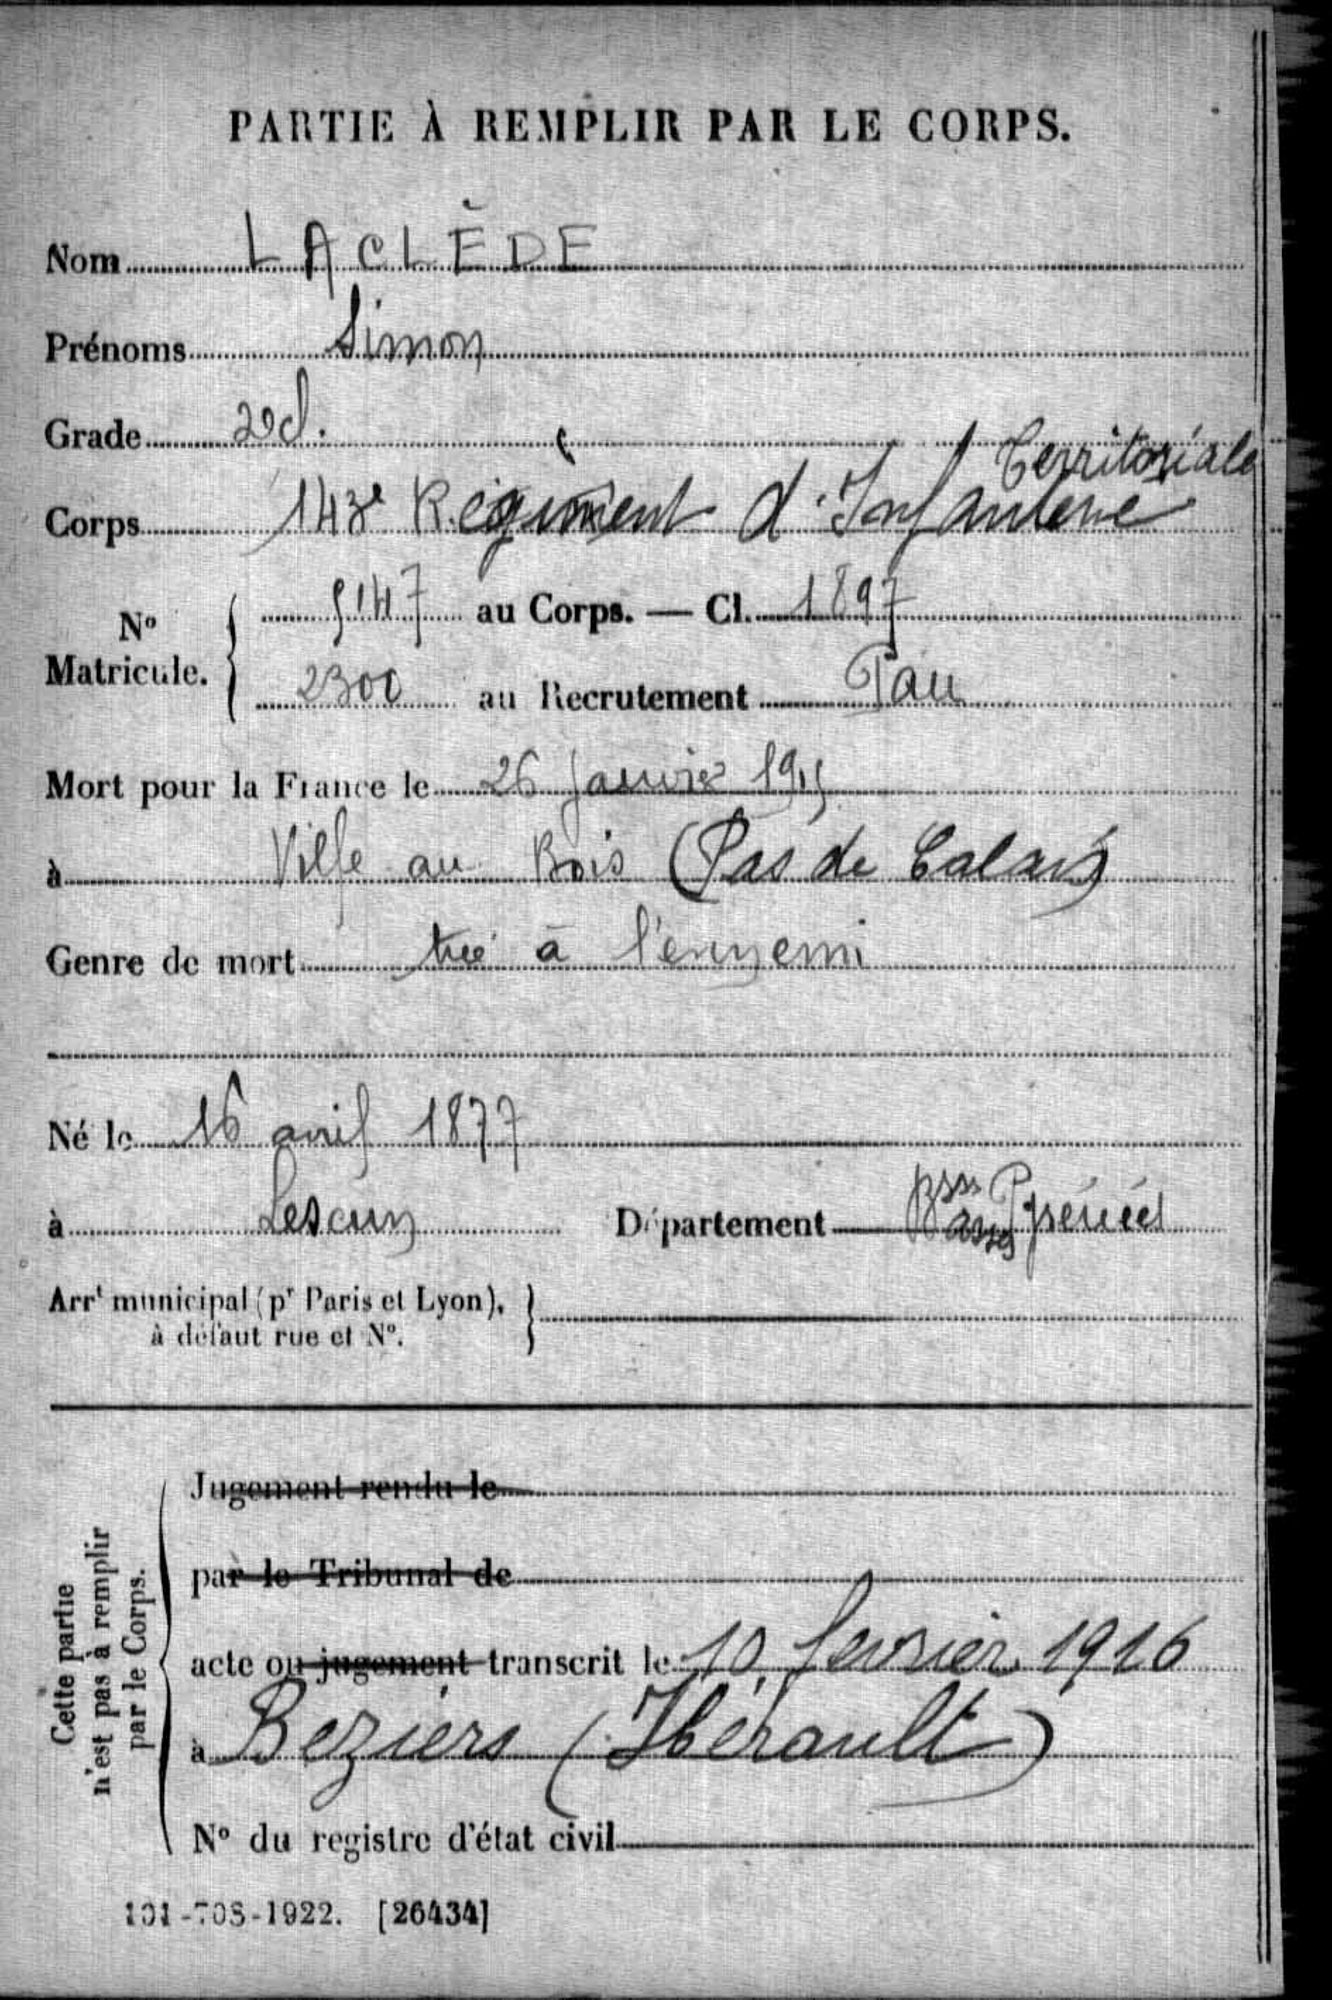 PARTIE À REMPLIR PAR LE CORPS.
Nom LACLÈDE
Prénoms Simon
Grade 2e cl.
Territoriale
Corps 143e Régiment d'Infanterie
No Matricule. 5147 au Corps. — Cl. 1897
2300 au Recrutement Pau
Mort pour la France le 26 Janvier 1915
à Ville au Bois (Pas de Calais)
Genre de mort tué à l'ennemi
Né le 16 avril 1877
à Lescun Département Bsses Pyrénées
Arrt municipal (pr Paris et Lyon),
à défaut rue et No.
Cette partie
n'est pas à remplir
par le Corps.
Jugement rendu le
par le Tribunal de
acte ou jugement transcrit le 10 février 1916
à Beziers (Hérault)
No du registre d'état civil
101-708-1922. [26434]